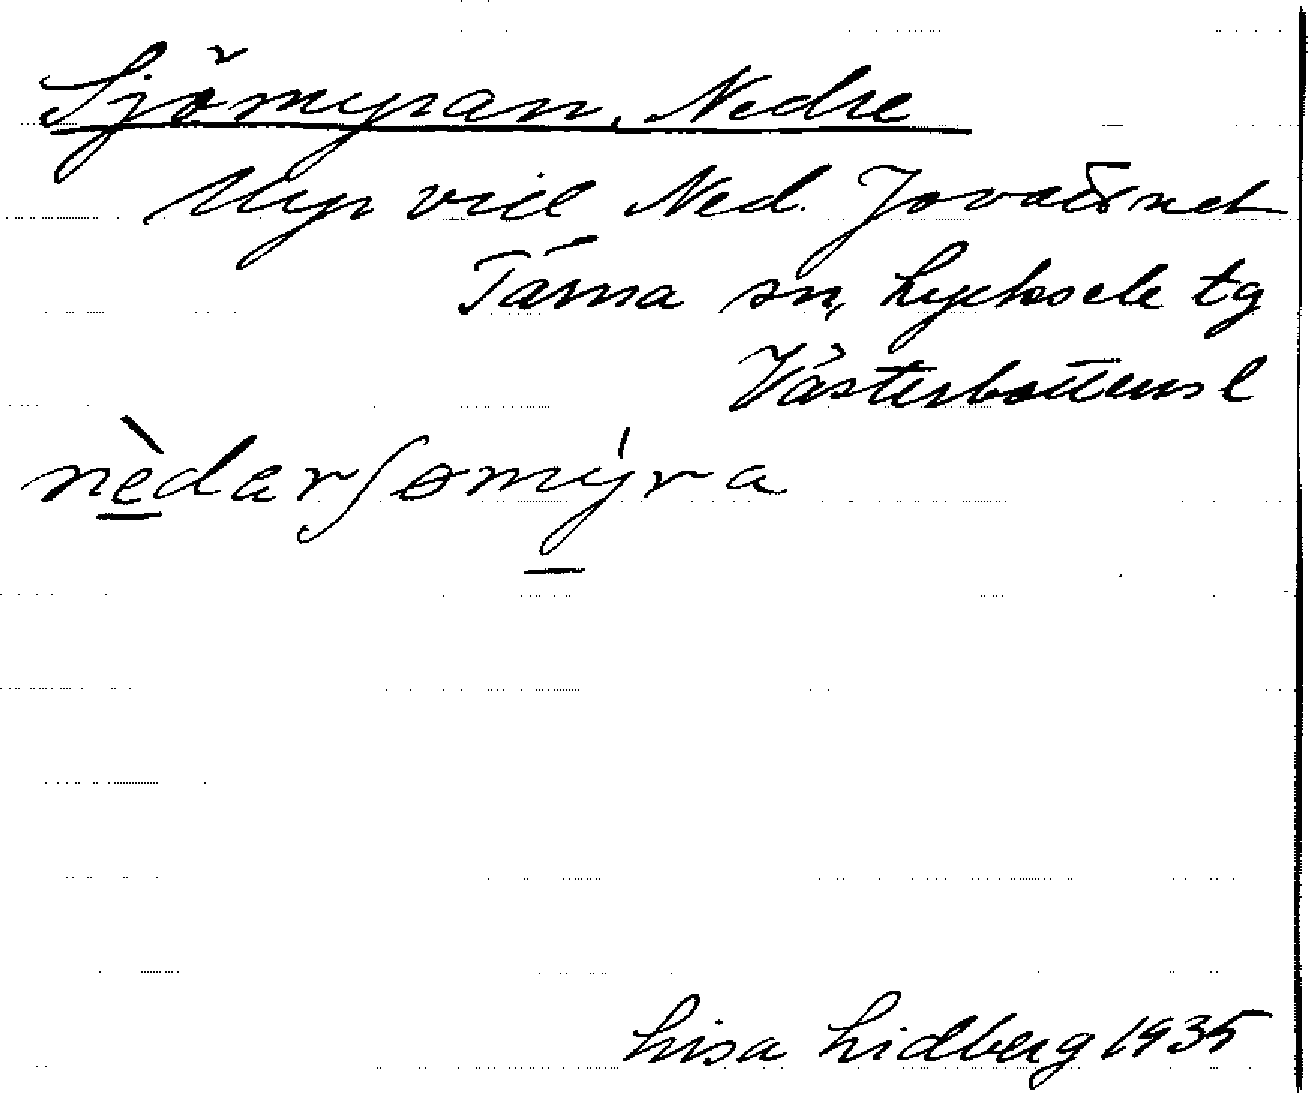 Sjömyran, Nedre
Myr vill Ned. Jovattnet
Tärna sn, Lycksele tg
Västerbottens l
nèdarʃømýra
Lisa Lidberg 1935